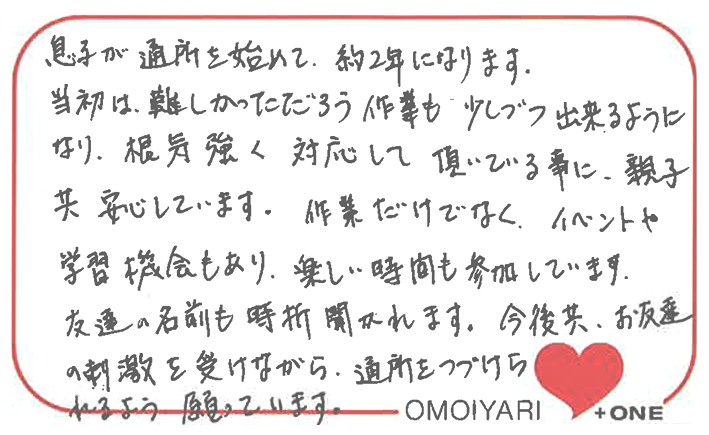 息子が通所を始めて、約2年になります。
当初は、難しかっただろう作業も少しづつ出来るように
なり、根気強く対応して頂いている事に、親子
共安心しています。作業だけでなく、イベントや
学習機会もあり、楽しい時間も参加しています。
友達の名前も時折聞かれます。今後共、お友達
の刺激を受けながら、通所をつづけら
れるよう願っています。
OMOIYARI +ONE